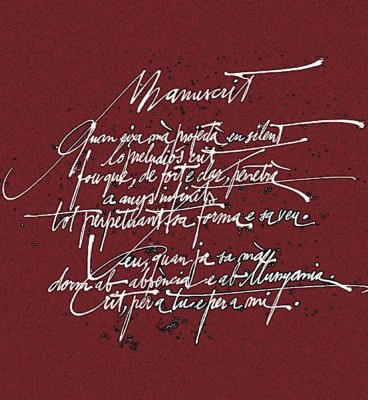 Manuscrit
Quan eixa mà projectà en silent
crit
fou que, de fort e clar, penetrà
a anys infinits
tot perpetuant sa forma e sa veu.
Veu, quan ja sa mà
dorm ab absència e ab llunyania.
Crit, per a tu e per a mi.